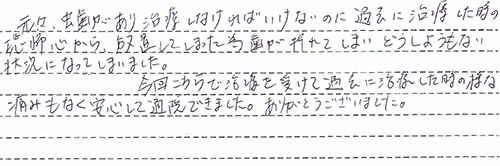 元々、虫歯があり治療しなければいけないのに過去に治療した時の
恐怖心から、放置してしまった為歯が折れてしまいどうしようもない
状況になってしまいました。
今回こちらで治療を受けて過去に治療した時の様な
痛みもなく安心して通院できました。ありがとうございました。